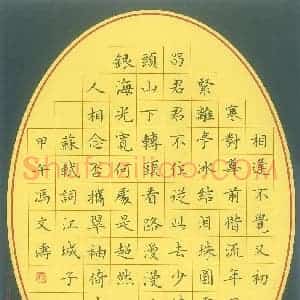 相逢不覺又初
寒對尊前惜流年
緊離亭冰結泪珠圓
君君不住從此去少
頭山下轉頭看路漫漫
銀海光寬何處是超然
人相念否攜翠袖倚
蘇軾詞江城子
甲午馮文濤
Shufaziliao.com